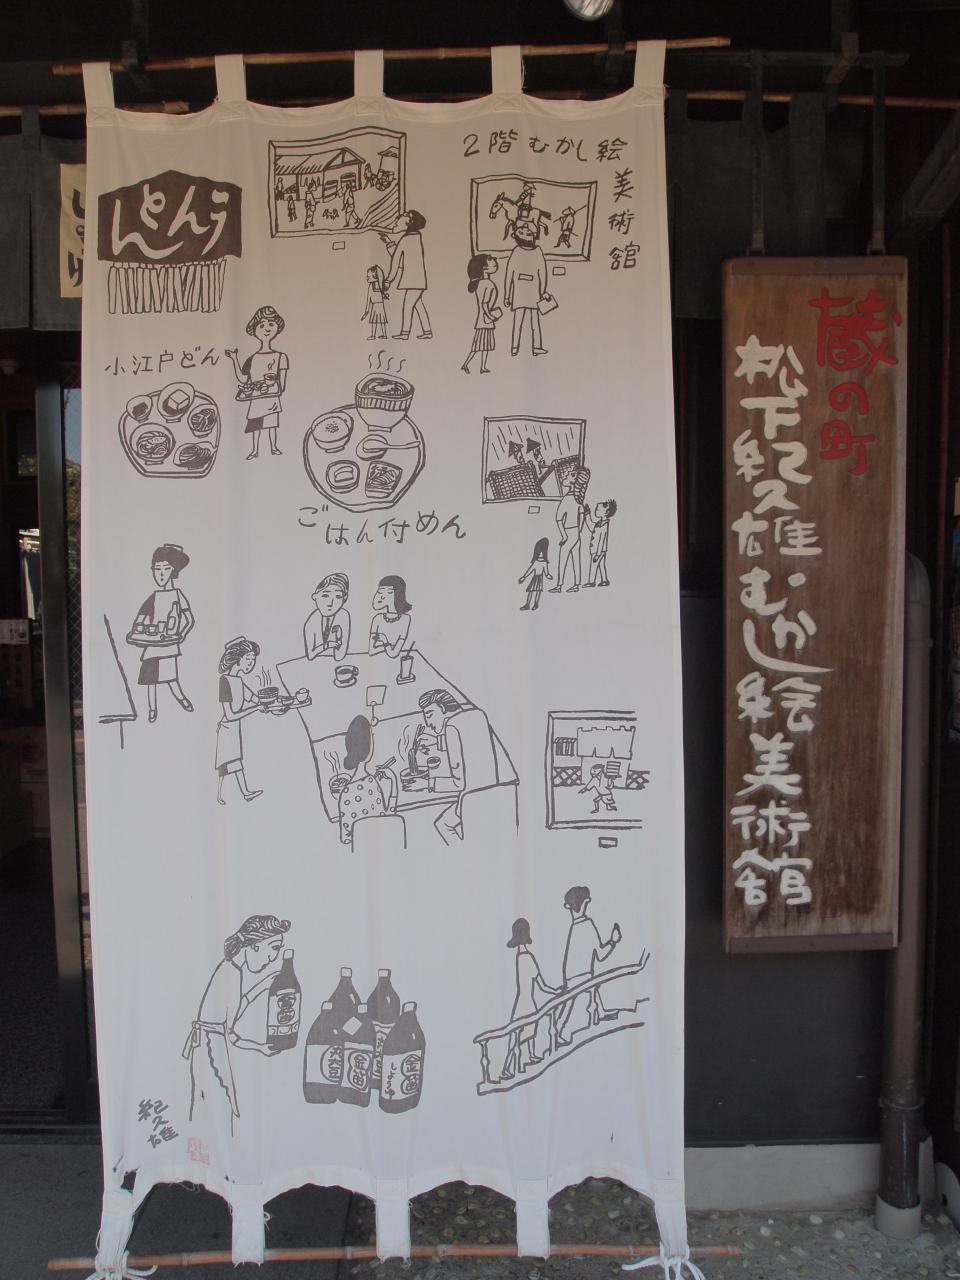 うんとん
２階むかし絵
美術館
小江戸どん
ごはん付めん
金笛
金笛
金笛
しょうゆ
紀久雄
蔵の町
松下紀久雄むかし絵美術館